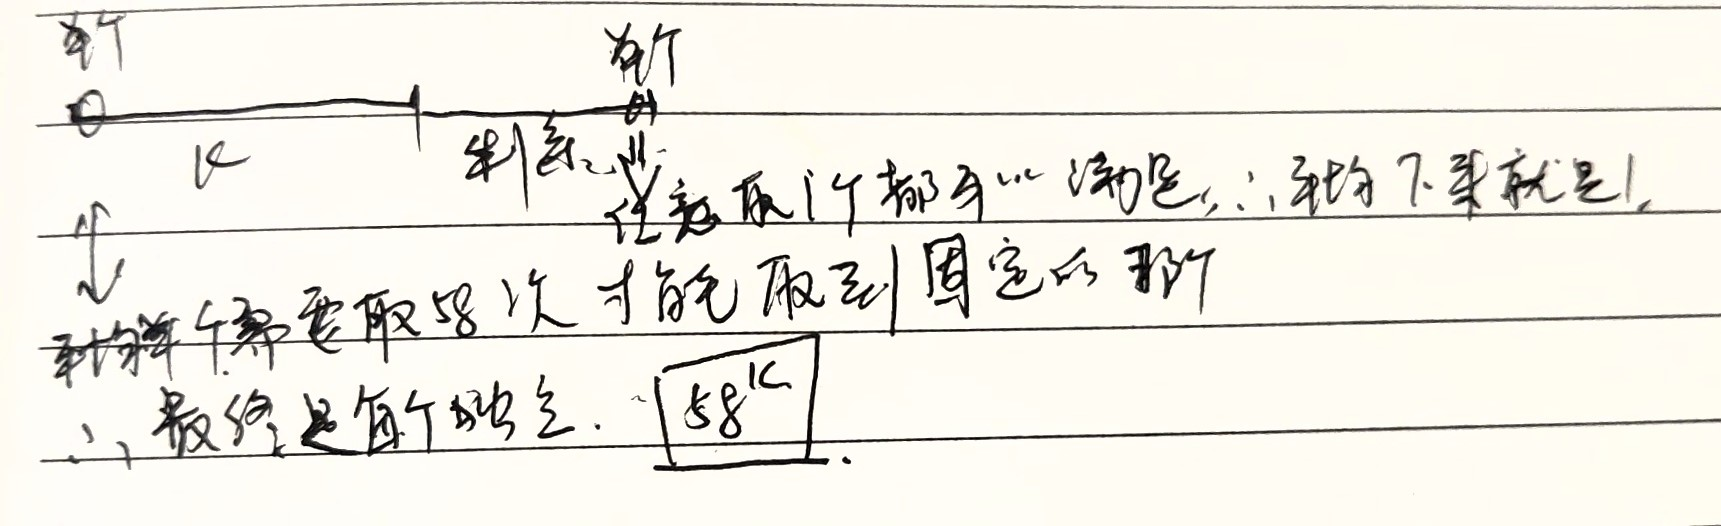 每个 每个
K 剩余
任意取1个都可以满足,∴平均下来就是1,
平均每个需要取58次才能取到固定的那个
∴最终是每个独立. 58^K.